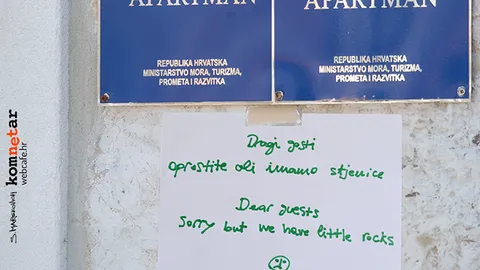 APARTMAN
APARTMAN
REPUBLIKA HRVATSKA
MINISTARSTVO MORA, TURIZMA,
PROMETA I RAZVITKA
REPUBLIKA HRVATSKA
MINISTARSTVO MORA, TURIZMA,
PROMETA I RAZVITKA
Dragi gosti
oprostite ali imamo stjenice
Dear guests
Sorry but we have little rocks
komnetar
webcafe.hr